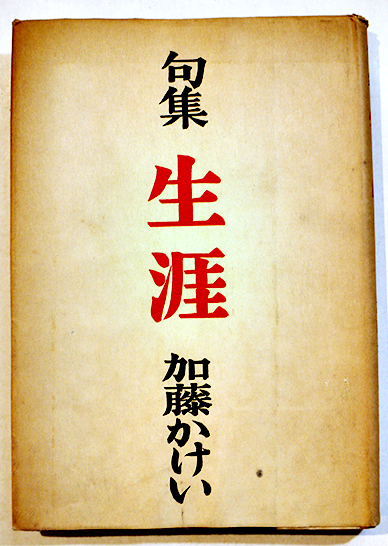 句集
生涯
加藤かけい